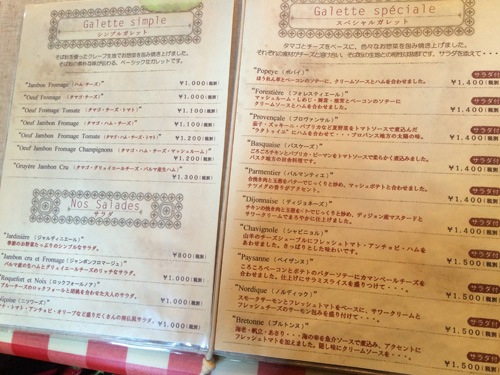 Galette simple
シンプルガレット
"Jambon Fromage (ハム・チーズ)"
¥1.000(税別)
"Oeuf Fromage (タマゴ・チーズ)"
¥1.000(税別)
"Oeuf Fromage Tomate (タマゴ・チーズ・トマト)"
¥1.100(税別)
"Oeuf Jambon Fromage (タマゴ・ハム・チーズ)"
¥1.100(税別)
"Oeuf Jambon Fromage Tomate (タマゴ・ハム・チーズ・トマト)"
¥1.200(税別)
"Oeuf Jambon Fromage Champignons (タマゴ・ハム・チーズ・マッシュルーム)"
¥1.200(税別)
"Gruyère Jambon Cru (タマゴ・グリュイエールチーズ・パルマ産生ハム)"
¥1.300(税別)
Nos Salades
サラダ
"Jardinière (ジャルディニエール)"
季節のお野菜たっぷりのシンプルなサラダ。
¥800(税別)
"Jambon cru et Fromage (ジャンボンフロマージュ)"
パルマ産の生ハムとグリュイエールチーズのリッチなサラダ。
¥1.000(税別)
"Roquefort et Noix (ロックフォールノア)"
ブルーチーズのロックフォールと胡桃を合わせた大人のサラダ。
¥1.000(税別)
(ニソワーズ)"
¥1.000(税別)
Galette spéciale
スペシャルガレット
タマゴとチーズをベースに、色々なお惣菜を包み焼き上げました。
"Popeye (ポパイ)"
ほうれん草とベーコンのソテーに、クリームソースとハムを合わせました。
サラダ付
¥1.400(税別)
"Forestière (フォレスティエール)"
マッシュルーム・しめじ・舞茸・椎茸とベーコンのソテーに
クリームソースとハムを合わせました。
サラダ付
¥1.400(税別)
"Provençale (プロヴァンサル)"
茄子・ズッキーニ・パプリカなど夏野菜をトマトソースで煮込んだ
"ラタトゥイユ"にハムを合わせて・・・プロバンス地方の太陽の味。
サラダ付
¥1.400(税別)
"Basquaise (バスケーズ)"
ごろごろチキンとパプリカ・ピーマンをトマトソースで柔らかく煮込みました。
バスク地方の田舎料理です。
サラダ付
¥1.400(税別)
"Parmentier (パルマンティエ)"
合挽き肉と玉葱をバターでじっくりと炒め、マッシュポテトと合わせました。
ナツメグの香りがアクセント。
サラダ付
¥1.400(税別)
"Dijonnaise (ディジョネーズ)"
チキンの挽き肉と玉葱をバターでじっくりと炒め、ディジョン産マスタードと
サワークリームでまろやかに仕上げました。
サラダ付
¥1.400(税別)
"Chavignole (シャビニョル)"
山羊のチーズシェーブルにフレッシュトマト・アンチョビ・ハムを
あわせました。さっぱりとした味わいです。
サラダ付
¥1.500(税別)
"Paysanne (ペイザンヌ)"
ころころベーコンとポテトのバターソテーにカマンベールチーズを
合わせ焼き、仕上げにサラミスライスを盛りつけて・・・。
サラダ付
¥1.500(税別)
"Nordique (ノルディック)"
スモークサーモンとフレッシュトマトをベースに、サワークリームと
フレッシュチーズのサーモン包みを盛り付けて・・・。
サラダ付
¥1.500(税別)
"Bretonne (ブルトンヌ)"
海老・帆立・あさり・・・海の幸を魚介ソースで煮込み、アクセントに
フレッシュトマトを加えました。隠し味にクリームソースを・・・。
サラダ付
¥1.500(税別)